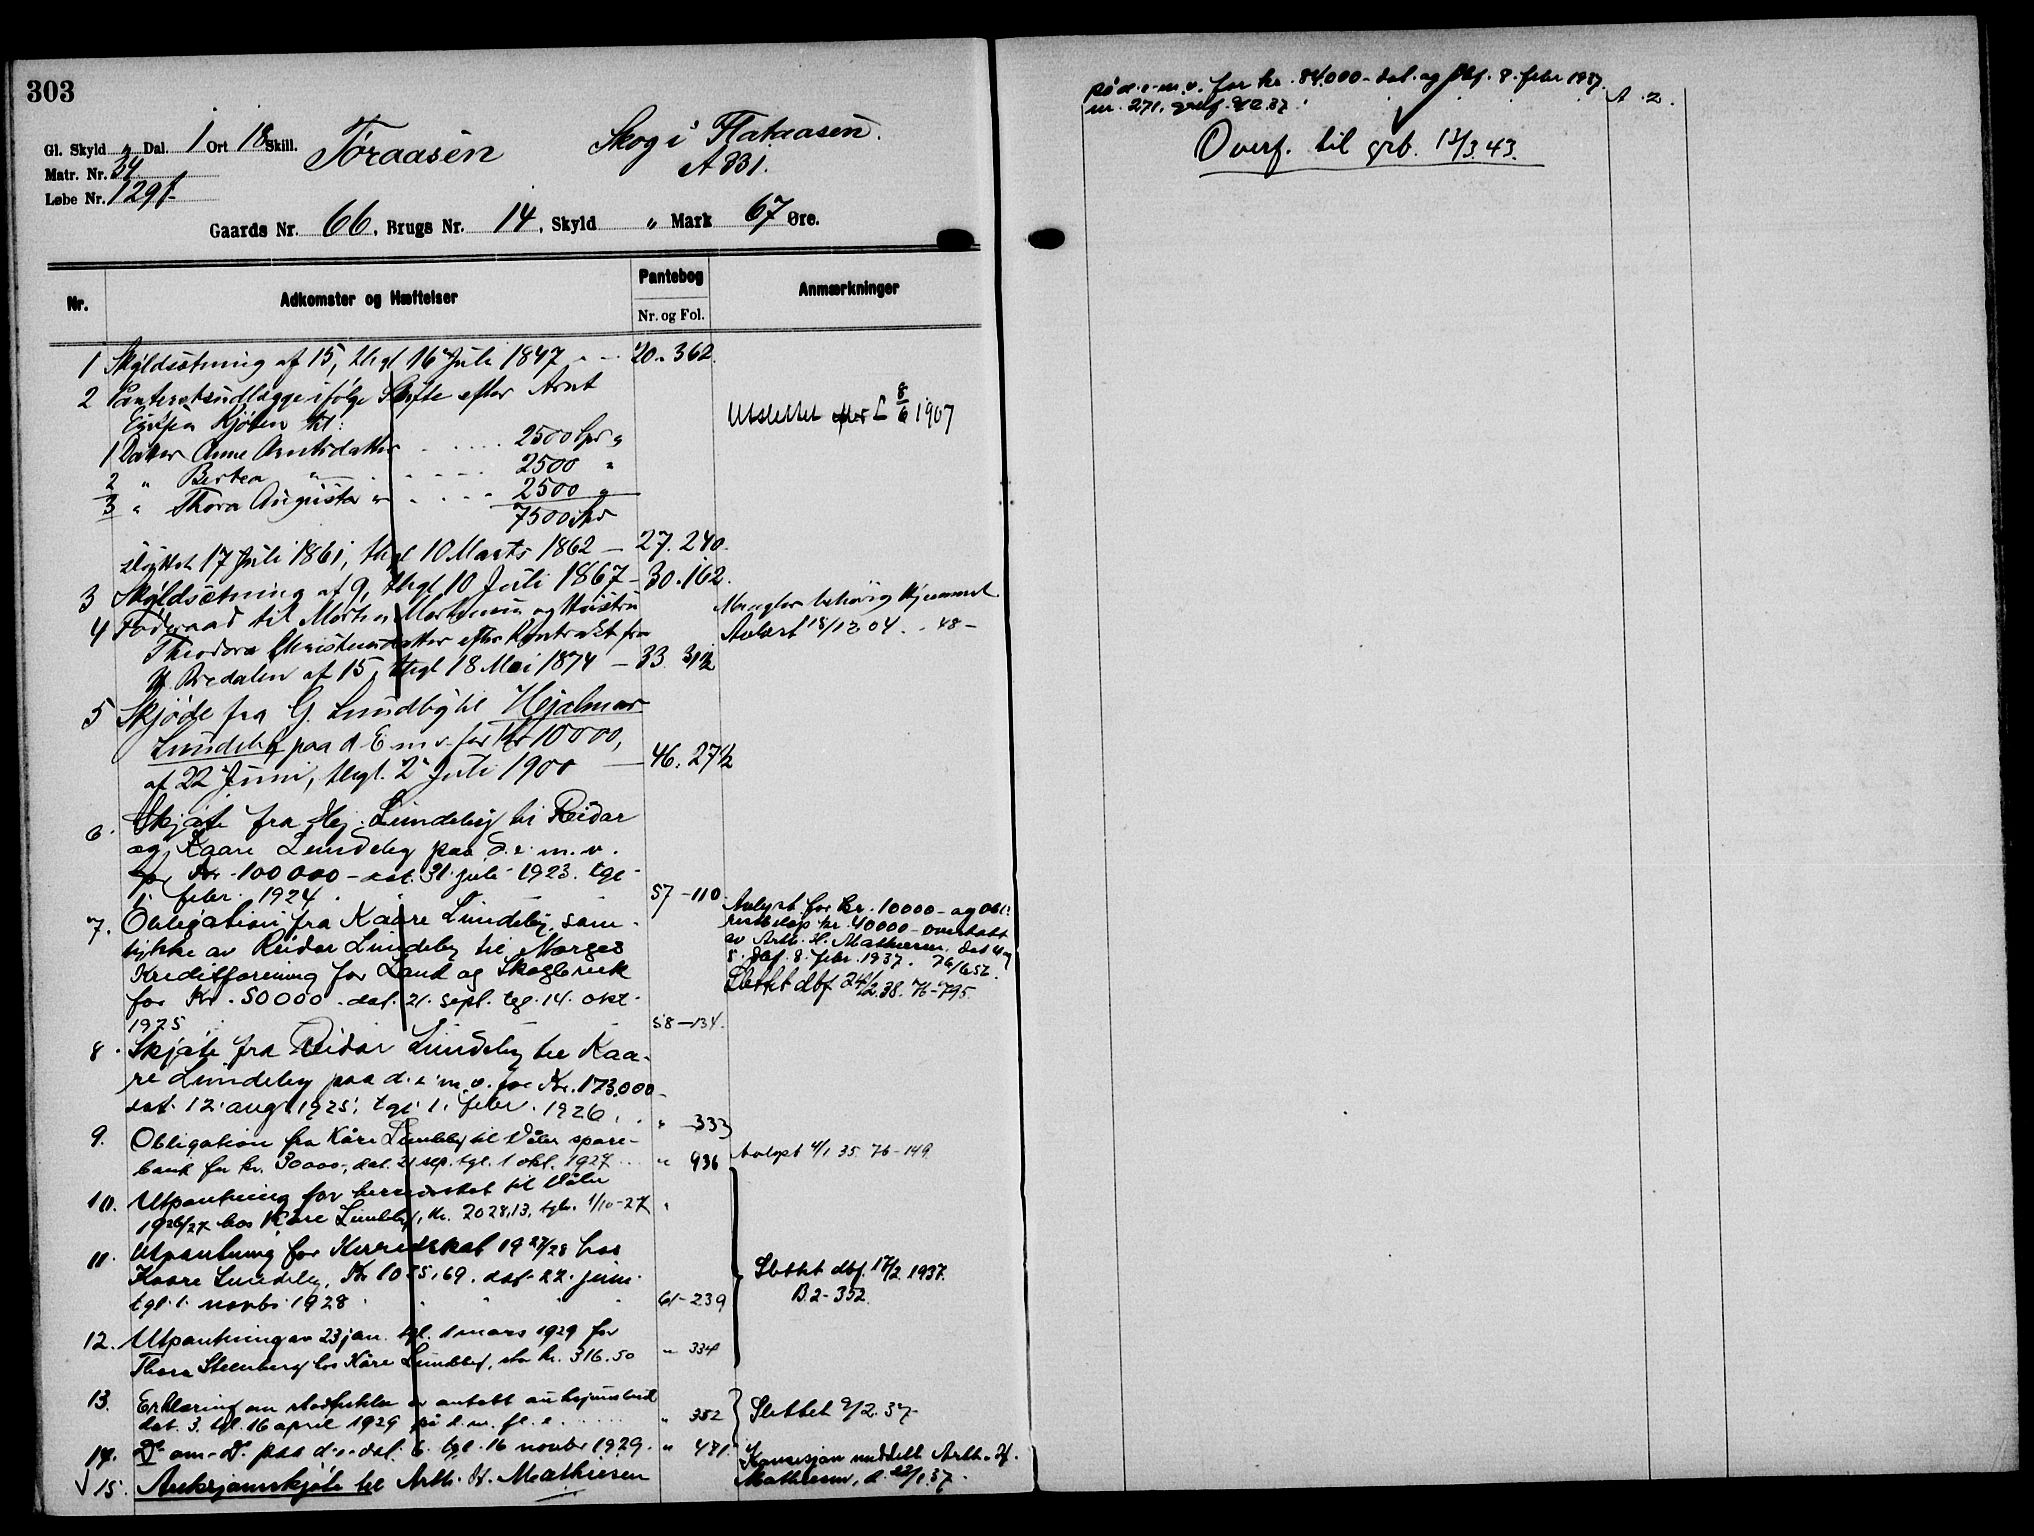 303
Gl. Skyld „ Dal. 1 Ort 18 Skill.
Matr. Nr. 34
Løbe Nr. 129f
Toraasen
Skog i Flataasen.
A 331.
Gaards Nr. 66, Brugs Nr. 14, Skyld „ Mark 67 Øre.
Nr.
Adkomster og Hæftelser
Pantebog
Nr. og Fol.
Anmærkninger
1 Skyldsætning af 15, thgl 16 Juli 1847 20. 362.
2 Panteretsudlægge ifølge Skifte efter Arnt
Kjølen til:
1 Datter Anne Arntsdatter 2500 Spd „
2 „ Berthea „ 2500 „
3 „ Thora Augusta „ 2500 „
7500 Spd
Utslettet efter L 8/6 1907
sluttet 17 Juli 1861, thgl 10 Marts 1862 — 27. 240.
3 Skyldsætning af 9, thgl 10 Juli 1867 - 30. 162.
4 Føderaad til Morten Mortensen og Hustru
Theodora Christensdatter efter Kontrakt fra
Bredalen af 15, thgl 18 Mai 1874 — 33. 312
Mangler behørig Hjemmel
Avlæst 18/12 04. - 48 -
5 Skjøde fra G. Lundby til Hjalmar
Lundeby paa d. E m. v. for Kr 10000,
af 22 Juni, thgl. 2 Juli 1900 — 46. 271/2
6. Skjøte fra Hj. Lundeby til Reidar
og Kaare Lundeby paa d. e. m. v.
for Kr. 100 000 - dat. 31 juli 1923. tgl.
1. febr. 1924. 57 - 110
7. Obligation fra Kaare Lundeby, sam-
tykke av Reidar Lundeby til Norges
Kreditforening for Land og Skogbruk
for Kr. 50000. dat. 21. sept. tgl. 14. okt.
1925 58 - 134.
Avlyst for kr. 10000 - og obl.
restbeløp kr. 40000 - overtatt
av Arth. H. Mathiesen. dat
dbf. 8. febr. 1937. 76/652.
Slettet dbf 24/2 38. 76 - 795.
8. Skjøte fra Reidar Lundeby til Kaa-
re Lundeby paa d. e. m. v. for Kr. 173.000 -
dat. 12. aug. 1925, tgl. 1. febr. 1926. „ - 333
9. Obligation fra Kåre Lundeby til Våler spare-
bank for kr. 30000,- dat. 21 sep. tgl. 1 okt. 1927 „ 936
Avlyst 4/1 35. 76 - 149
10. Utpantning for herredsskat til Våler
1926/27 hos Kåre Lundeby, kr. 2028,13, tgl. 1/10 - 27 „
11. Utpantning for Herredskat 1927/28 hos
Kaare Lundeby, Kr 1035,69. dat. 22. juni.
tgl. 1. novbr. 1928 61 - 239
Slettet dbf. 17/2 1937.
B. 2 - 352.
12. Utpantning av 23 jan. tgl. 1 mars 1929 for
Thora Steenberg hos Kåre Lundeby, stor kr. 316.50 „ 334
13. Erklæring om at er antatt
dat. 3. tgl. 16 april 1929 på d. m. fl. e. „ 352
Slettet 9/2. 37.
14. Do om Do paa d. e. dat. 6. tgl. 16 novbr 1929. „ 481.
√ 15. Auksjonsskjøte til Arth. H. Mathiesen
Konsesjon meddelt Arth. H.
Mathiesen, d. 22/1. 37.
på d. e. m. v. for kr. 84.000 - dat. og dbf. 8. febr 1937.
nr. 271. A. 2.
Overf. til grb. 13/3. 43.